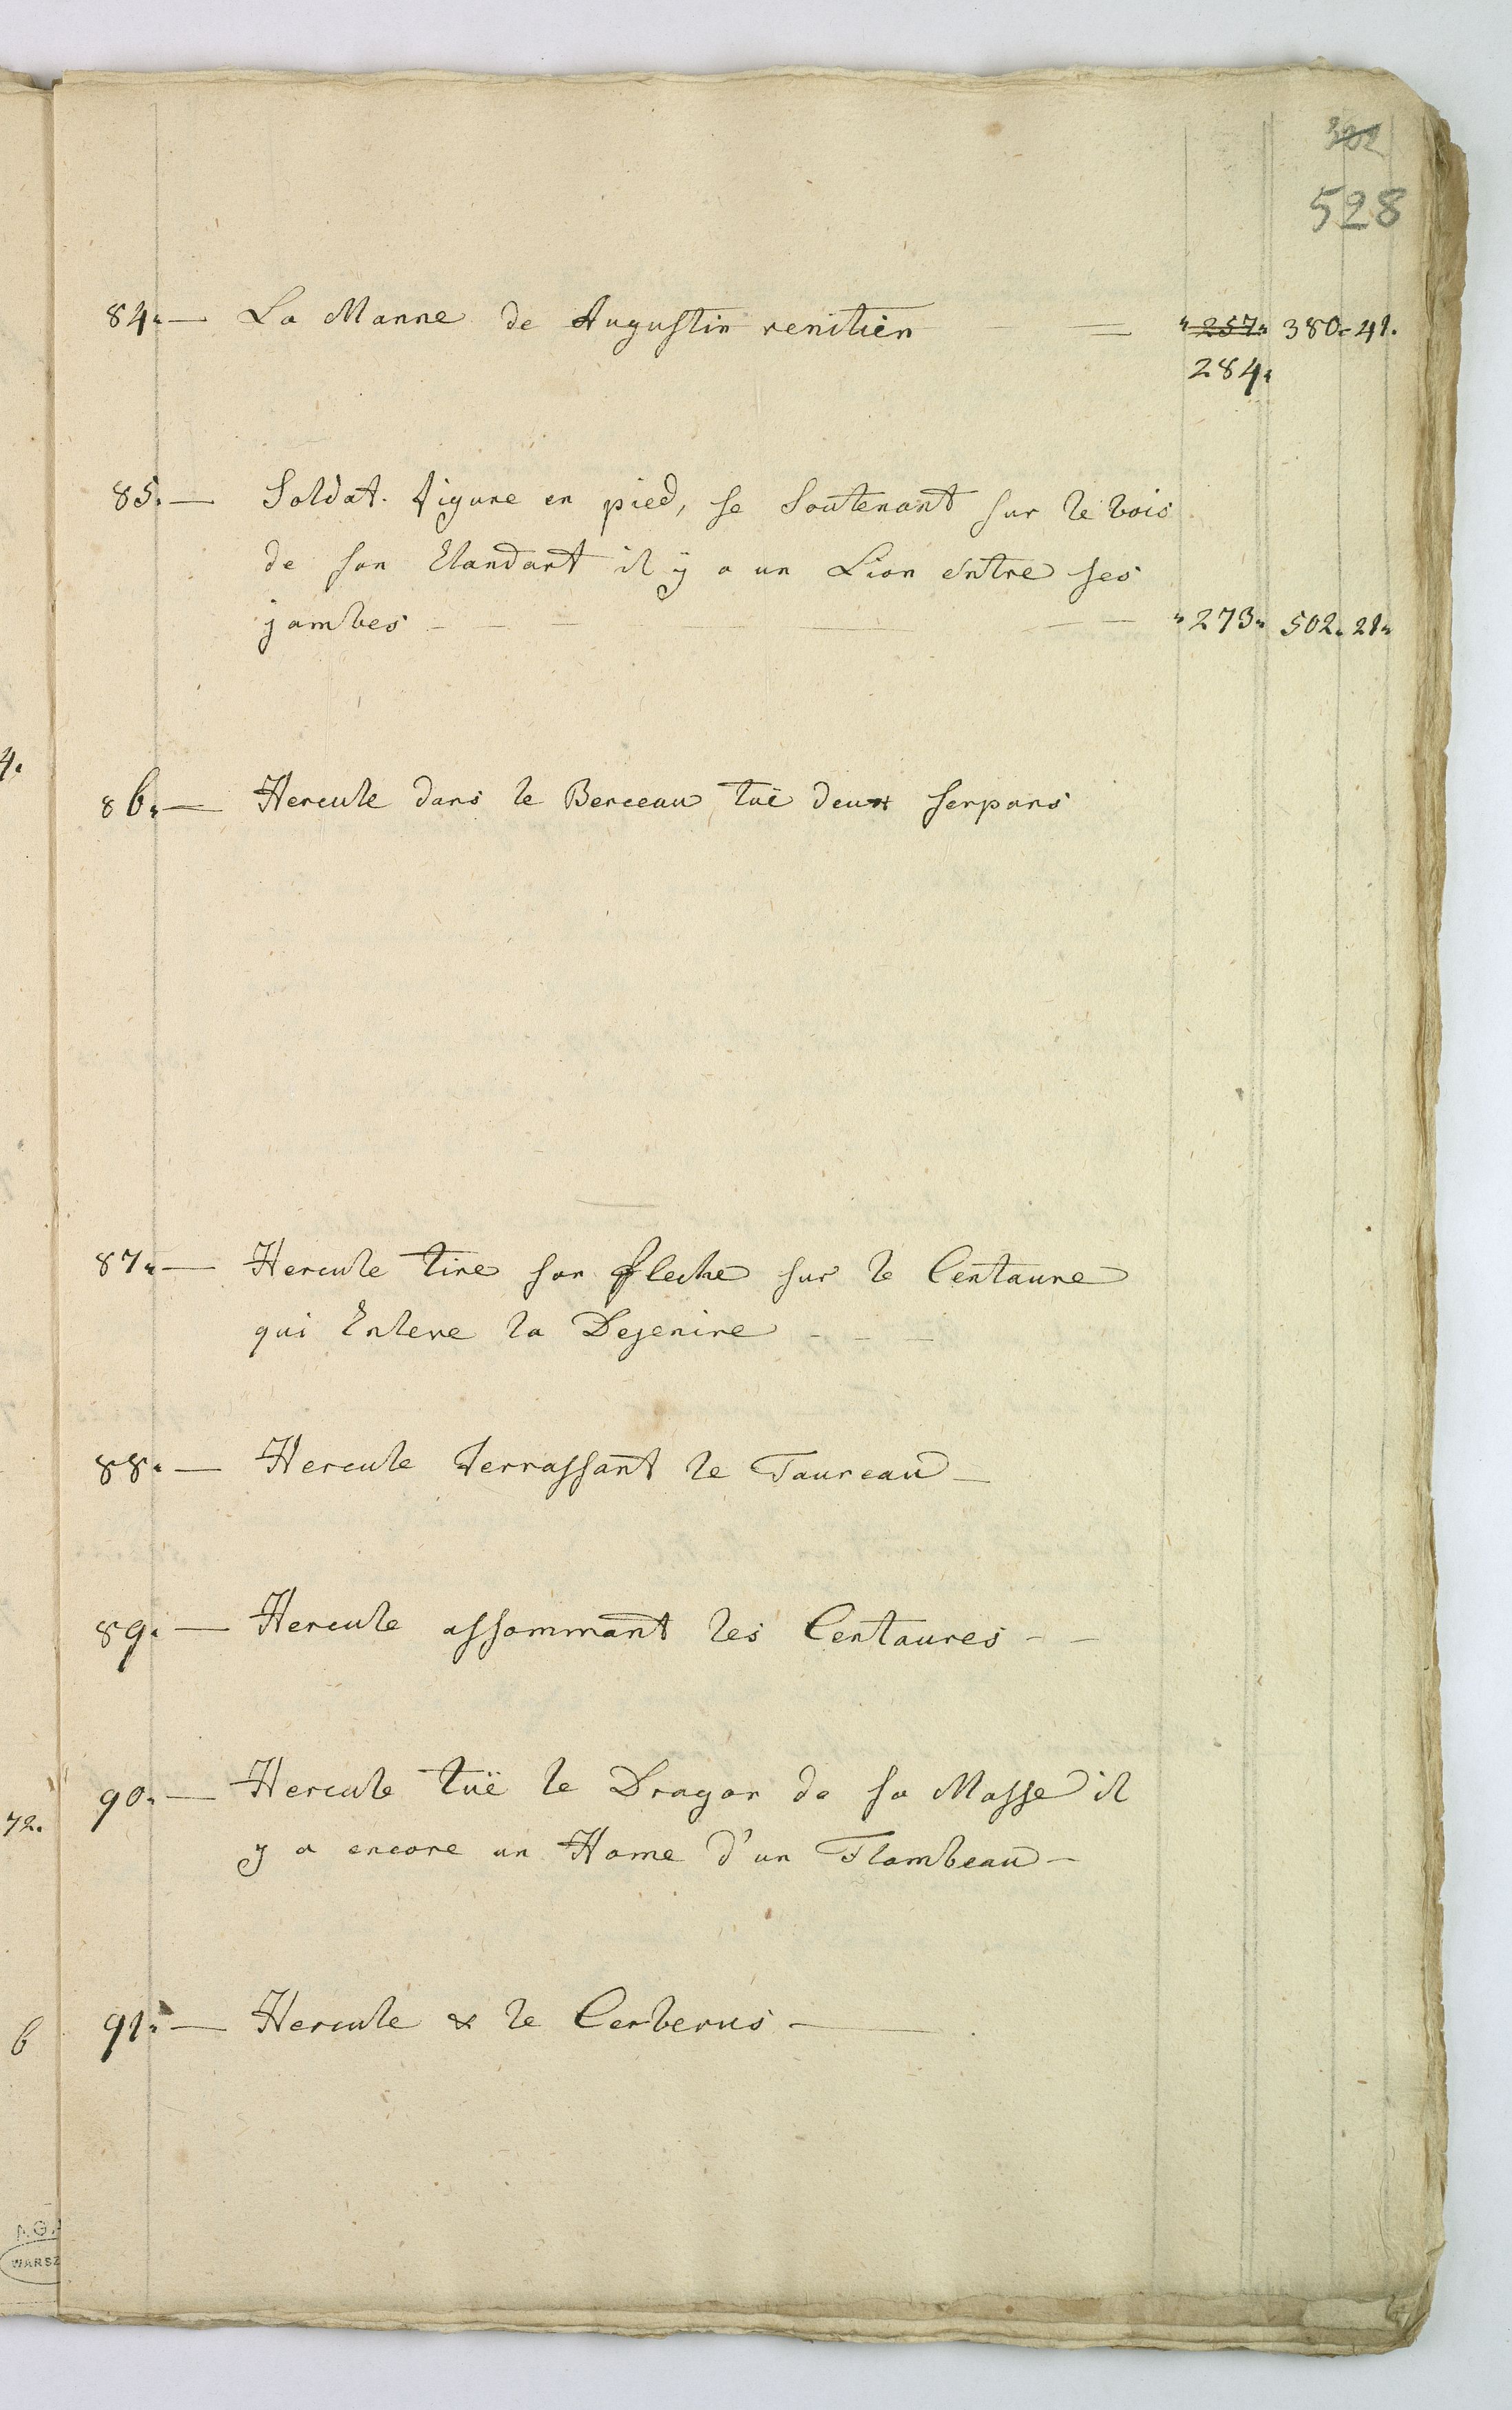 302
528
84. — La Manne de Augustin venitien = " 257. 380. 41.
284.
85. — Soldat. figure en pied, se Soutenant sur le bois
de son Etandart il ÿ a un Lion entre ses
jambes - - - — - — " 273. 502. 21.
4.
86. — Hercule dans le Berceau tuë deux serpans
87. — Hercule tire son fleche sur le Centaure
qui Enleve la Dejenire - - -
88. — Hercule terrassant le Taureau —
89. — Hercule assommant les Centaures - -
90. — Hercule tuë le Dragon de sa Masse il
72.
y a encore un Home d'un Flambeau -
91. — Hercule & le Cerberus —
6
AGA
WARSZ